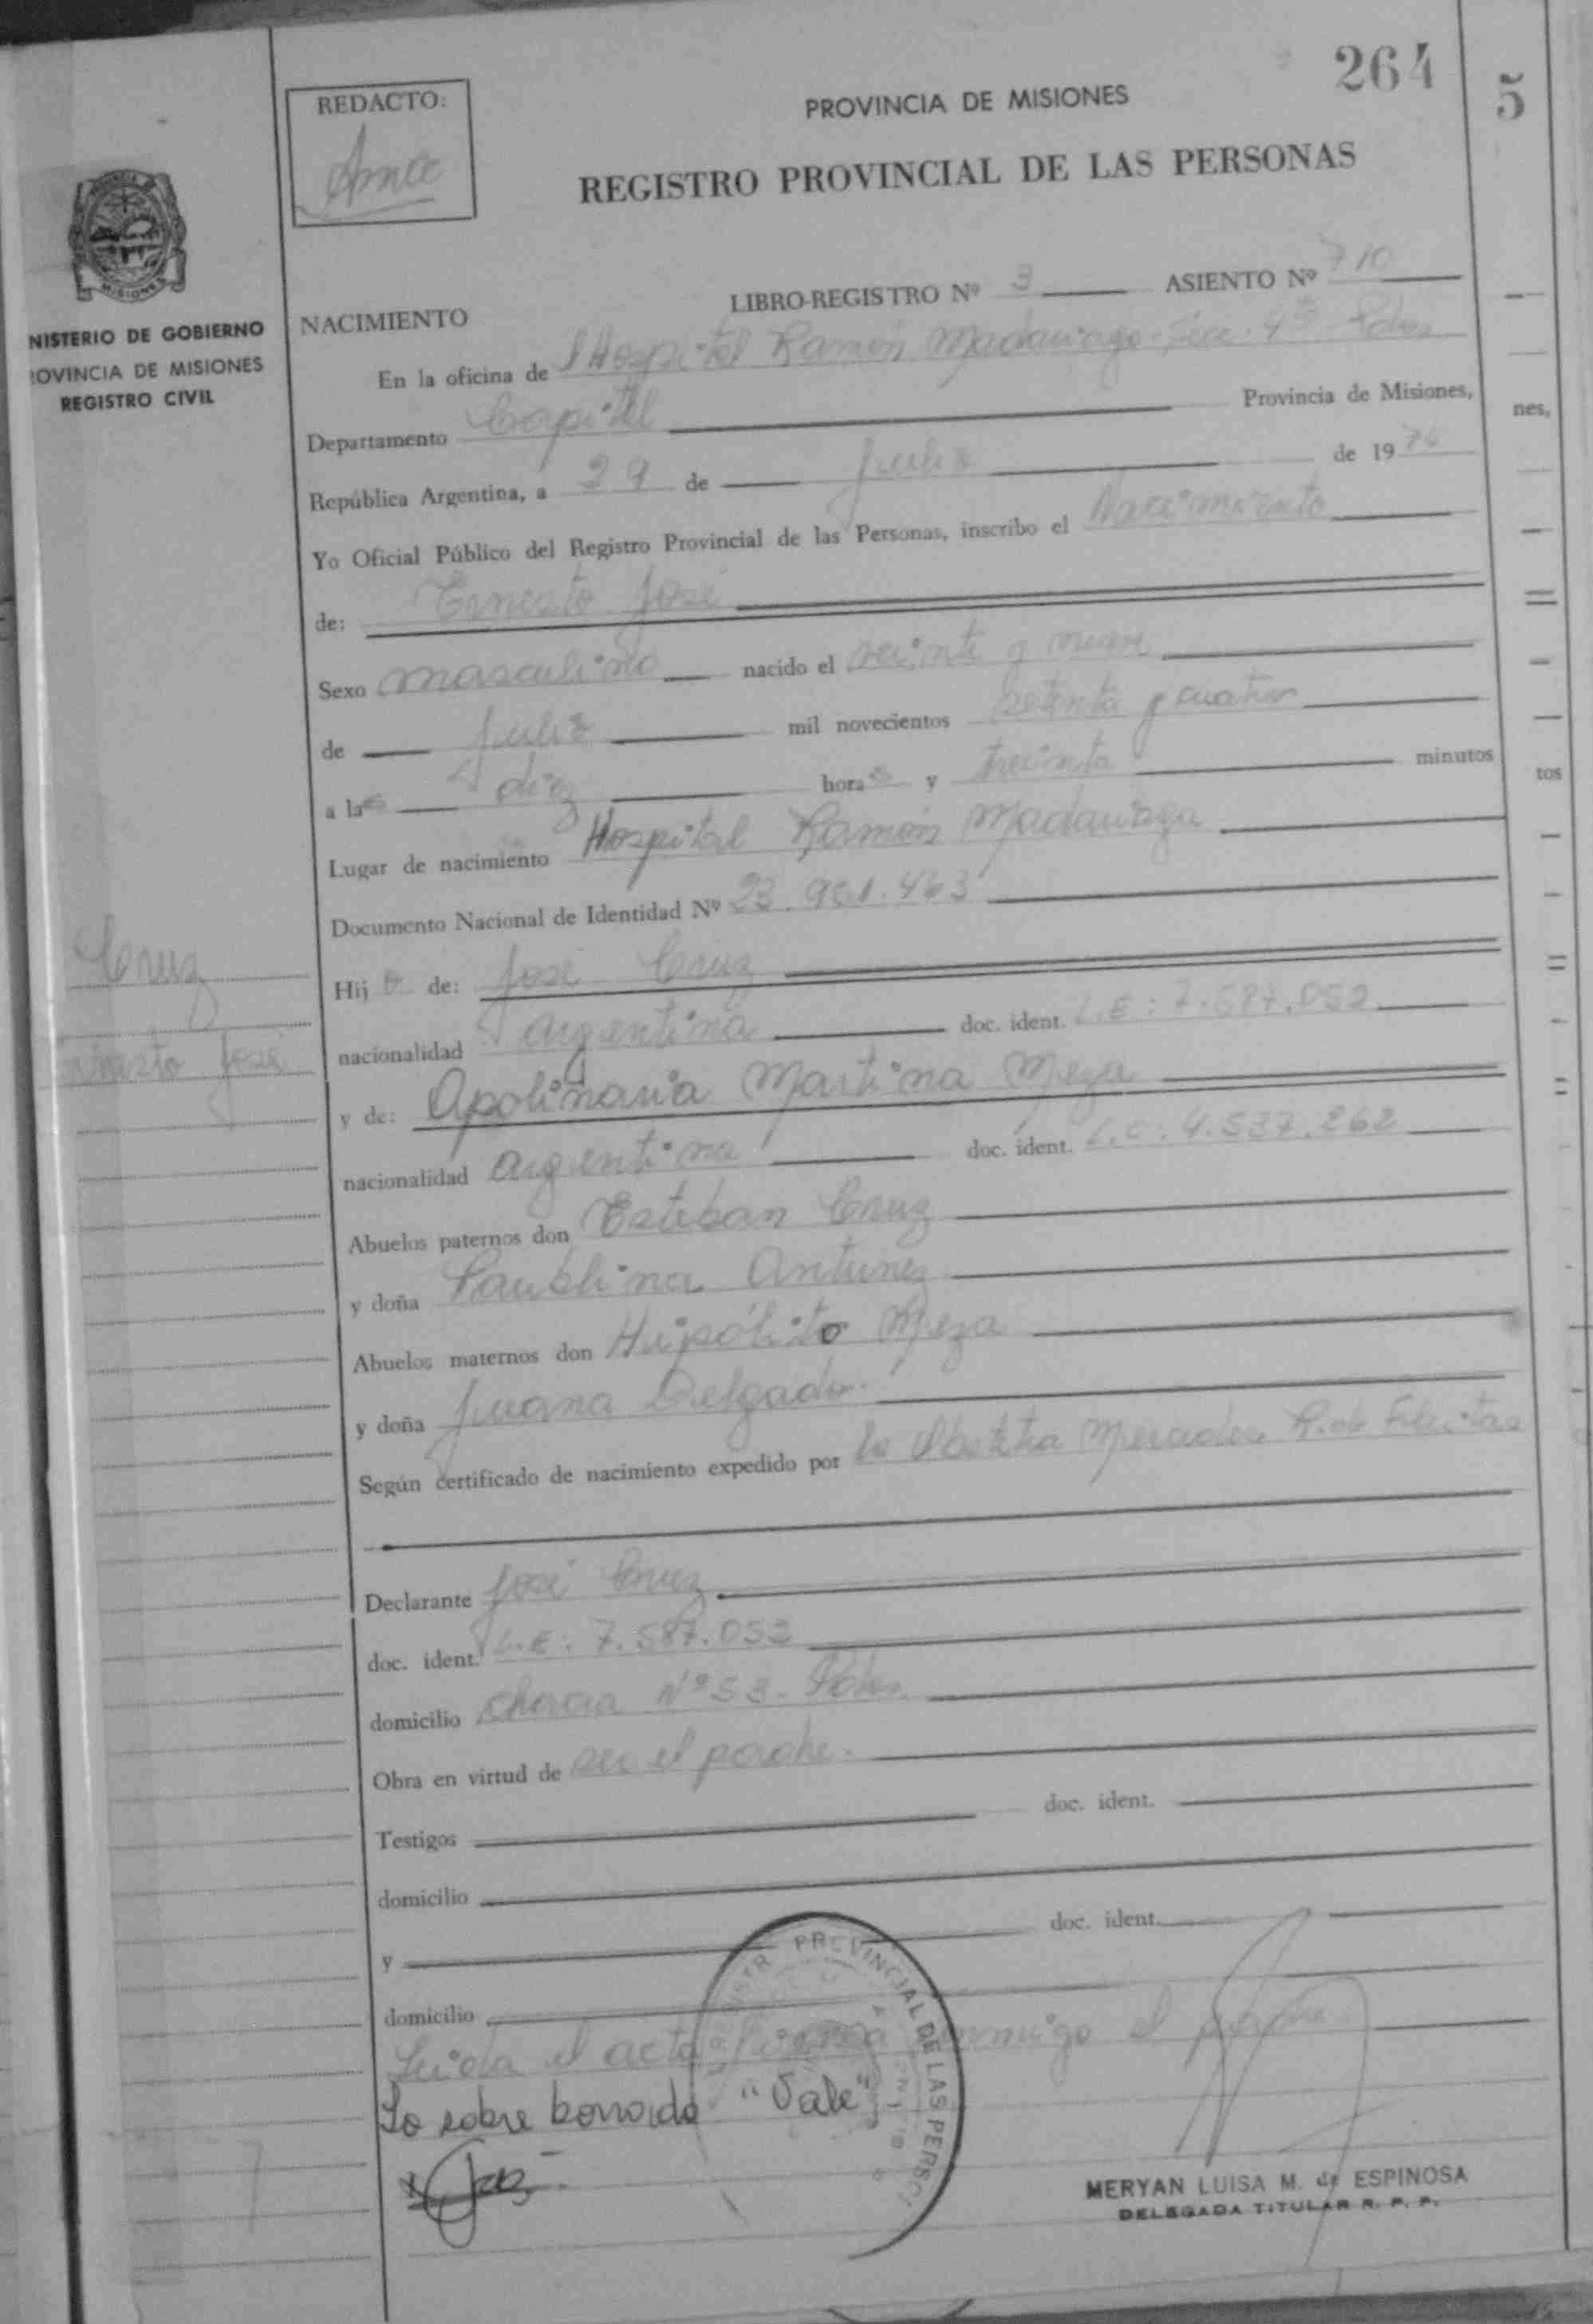 264
5
REDACTO:
PROVINCIA DE MISIONES
REGISTRO PROVINCIAL DE LAS PERSONAS
MISIONES
NISTERIO DE GOBIERNO
ROVINCIA DE MISIONES
REGISTRO CIVIL
LIBRO-REGISTRO Nº 3 ASIENTO Nº 710
NACIMIENTO
En la oficina de Hospital Ramón Madariaga
Departamento Capital Provincia de Misiones,
nes,
República Argentina, a 29 de Julio de 1974
Yo Oficial Público del Registro Provincial de las Personas, inscribo el Nacimiento
de: Ernesto José
Sexo masculino nacido el veinte y nueve
de Julio mil novecientos setenta y cuatro
a las diez horas y treinta minutos
tos
Lugar de nacimiento Hospital Ramón Madariaga
Documento Nacional de Identidad Nº 23.951.463
Cruz
Hijo de: José Cruz
nacionalidad argentina doc. ident. L.E: 7.587.052
Ernesto José
y de: Apolinaria Martina Meza
nacionalidad argentina doc. ident. L.C: 4.537.262
Abuelos paternos don Esteban Cruz
y doña Paublina Antunez
Abuelos maternos don Hipólito Meza
y doña Juana Delgado.
Según certificado de nacimiento expedido por la Obstetra Mercedes R. de
Declarante José Cruz
doc. ident. L.E: 7.587.052
domicilio Chacra Nº 53. Pdas.
Obra en virtud de ser el padre.
Testigos doc. ident.
domicilio
y doc. ident.
domicilio
Leida el acta firma conmigo el padre.
Lo sobre borrado "Vale"
REGISTR PROVINCIAL DE LAS PERSO
MERYAN LUISA M. de ESPINOSA
DELEGADA TITULAR R. P. P.